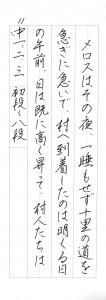 メロスはその夜、一睡もせず十里の道を
急ぎに急いで、村へ到着したのは明くる日
の午前、日は既に高く昇って、村人たちは
"中一、二、三 初段〜八段